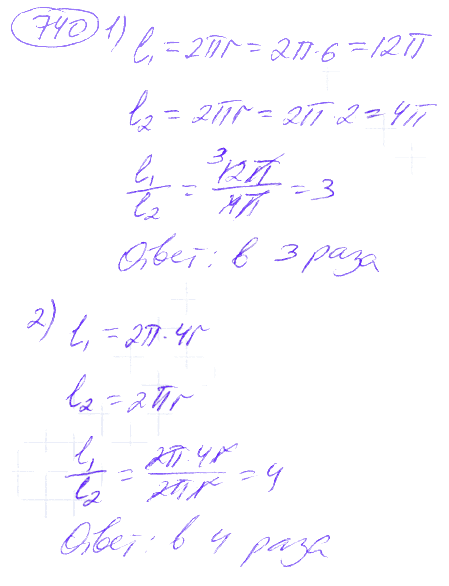 740 1) l₁ = 2πr = 2π·6 = 12π
l₂ = 2πr = 2π·2 = 4π
l₁/l₂ = 12π/4π = 3
3
Ответ: в 3 раза
2) l₁ = 2π·4r
l₂ = 2πr
l₁/l₂ = 2π·4r/2πr = 4
Ответ: в 4 раза